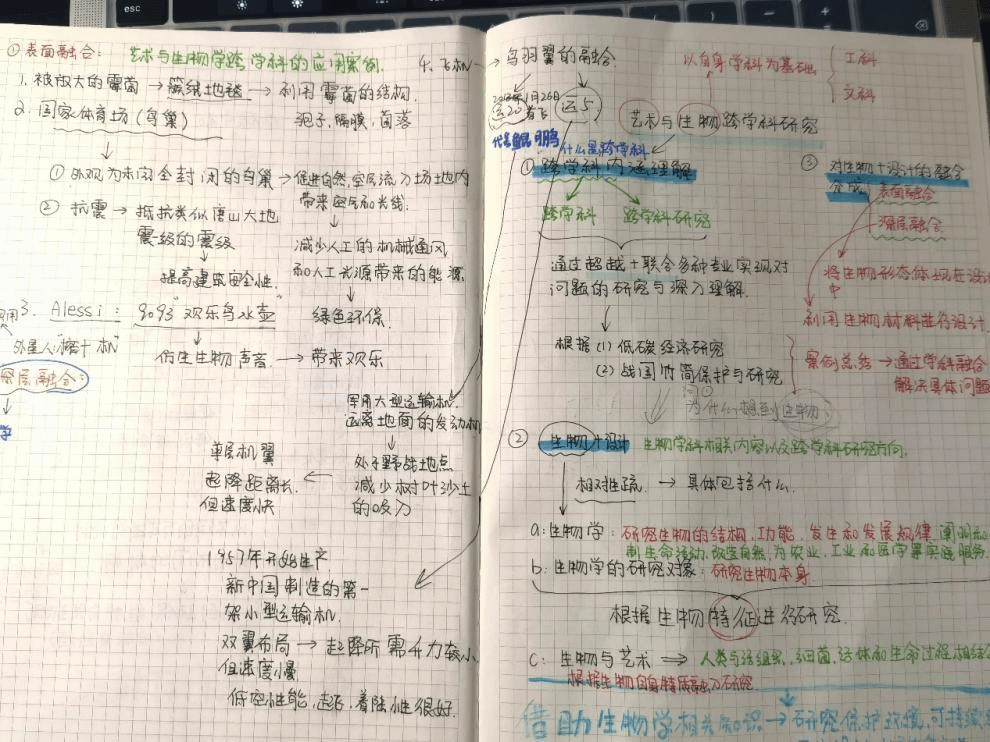 esc
①表面融合：
艺术与生物学跨学科的应用案例.
1. 被放大的霉菌→簇绒地毯→利用霉菌的结构.
孢子,隔膜,菌落
2. 国家体育场(鸟巢)
① 外观为未闭全封闭的鸟巢→促进自然,空气流入场地内
带来空气和光线.
② 抗震→抵抗类似唐山大地
震级的震级
减少人工的机械通风
和人工光源带来的能源
提高建筑安全性.
绿色环保.
3. Alessi: 9093"欢乐鸟水壶"
外星人"榨汁机"
仿生生物声音→带来欢乐
深层融合:
学
军用大型运输机.
远离地面的发动机
单层机翼
起降距离长.
但速度快
处于野战地点
减少树叶沙土
的吸入
1957年开始生产
新中国制造的第一
架小型运输机.
双翼布局→起降所需升力较小
但速度慢
低空性能,起飞,着陆性很好.
4. 飞机→鸟羽翼的融合.
1月26日
运20首飞
运5
代号鲲鹏
以自身学科为基础
工科
文科
艺术与生物跨学科研究
什么是跨学科
① 跨学科内涵理解
跨学科 跨学科研究
通过超越+联合多种专业实现对
问题的研究与深入理解.
根据(1)低碳经济研究
(2)战国竹简保护与研究
为什么想到生物
③ 对生物+设计的融合
表面融合
深层融合
将生物形态体现在设计
中
利用生物材料进行设计.
案例总结→通过学科融合
解决具体问题
② 生物+设计 生物学科相关内容以及跨学科研究方向.
相对性疏.→具体包括什么.
a:生物学:研究生物的结构,功能,发生和发展规律.阐明和
制生命活动,改造自然,为农业,工业和医学等实践服务.
b:生物学的研究对象:研究生物本身
根据生物特征进行研究.
c:生物与艺术⇒人类与活组织,细菌,活体和生命过程相结合
根据生物自身特质融入研究.
借助生物学相关知识→研究保护环境,可持续